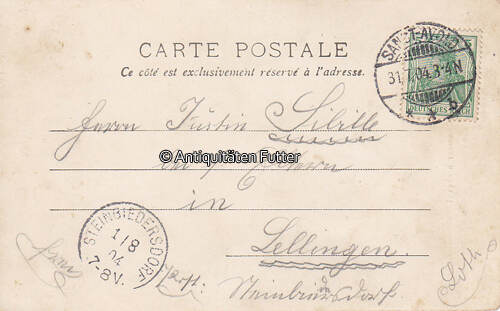 CARTE POSTALE
Ce côté est exclusivement réservé à l'adresse.
SANKT-AVOLD
31. 7. 04. 3-4N
b
DEUTSCHES REICH
Herrn Justin Sibille
© Antiquitäten Futter
in
Lellingen.
Steinbiedersdorf.
STEINBIEDERSDORF
1/8
04
7-8V.
(Loth.
(Loth)